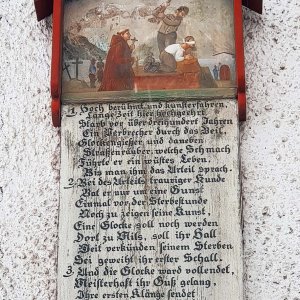 1. Hoch berühmt und kunsterfahren,
Lange Zeit hier hochgeehrt
Starb vor überdreihundert Jahren
Ein Verbrecher durch das Beil,
Glockengießer und daneben
Straßenräuber; welche Schmach
Führte er ein wüstes Leben,
Bis man ihm das Urteil sprach
2. Bei des Urteils trauriger Kunde
Bat er nur um eine Gunst
Einmal vor der Sterbestunde
Noch zu zeigen seine Kunst,
Eine Glocke soll noch werden
Dort zu Mils, soll ihr Hall
Weit verkünden seinem Sterben
Sei geweiht ihr erster Schall.
3. Und die Glocke ward vollendet,
Meisterhaft ihr Guß gelang,
Ihre ersten Klänge sendet